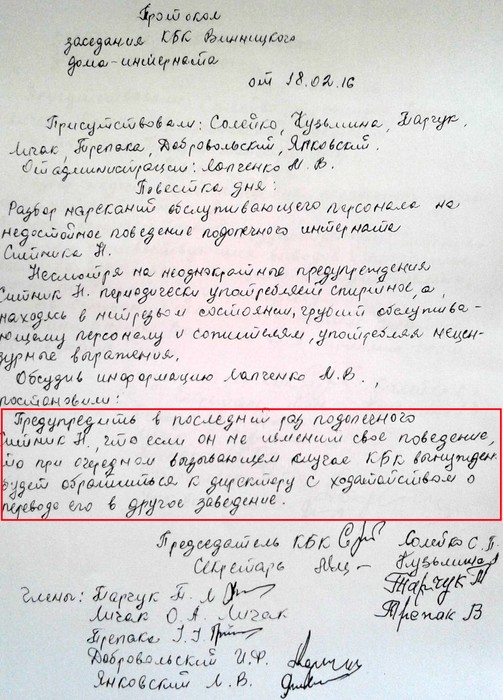 Протокол
заседания КБК Винницкого
дома-интерната
от 18.02.16
Присутствовали: Солейко, Кузьмина, Тарчук,
Личак, Трепака, Добровольский, Янковский.
От администрации: Лапченко М. В.
Повестка дня:
Разбор нареканий обслуживающего персонала на
недостойное поведение подопечного интерната
Ситника Н.
Несмотря на неоднократные предупреждения
Ситник Н. периодически употребляет спиртное, а,
находясь в нетрезвом состоянии, грубит обслужива-
ющему персоналу и сожителям, употребляя нецен-
зурные выражения.
Обсудив информацию Лапченко М. В.,
постановили:
Предупредить в последний раз подопечного
Ситник Н., что если он не изменит свое поведение,
то при очередном вызывающем случае КБК вынужден
будет обратиться к директору с ходатайством о
переводе его в другое заведение.
Председатель КБК Солейко С. П.
Секретарь Кузьмина
Члены: Тарчук П. М Тарчук
Личак О. А. Личак Трепак В
Трепака
Добровольский И. Ф.
Янковский Л. В.